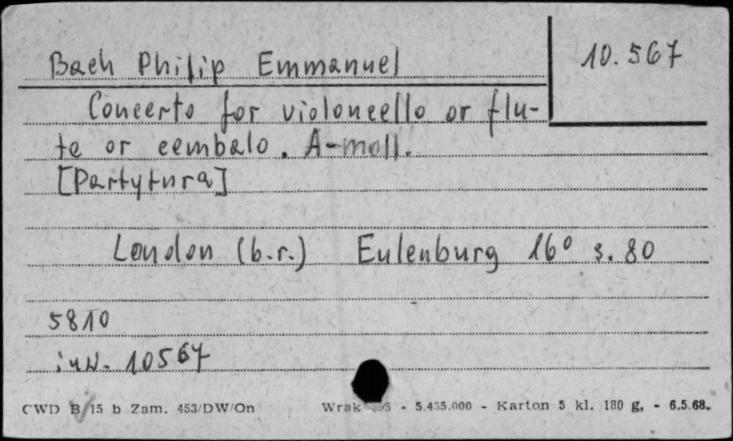 10.567
Bach Philip Emmanuel
Concerto for violoncello or flu-
te or cembalo. A-moll.
[Partytura]
London (b.r.) Eulenburg 16° s. 80
5810
inw. 10567
CWD B/15 b Zam. 453/DW/On Wrak - 5.435.000 - Karton 5 kl. 180 g. - 6.5.68.